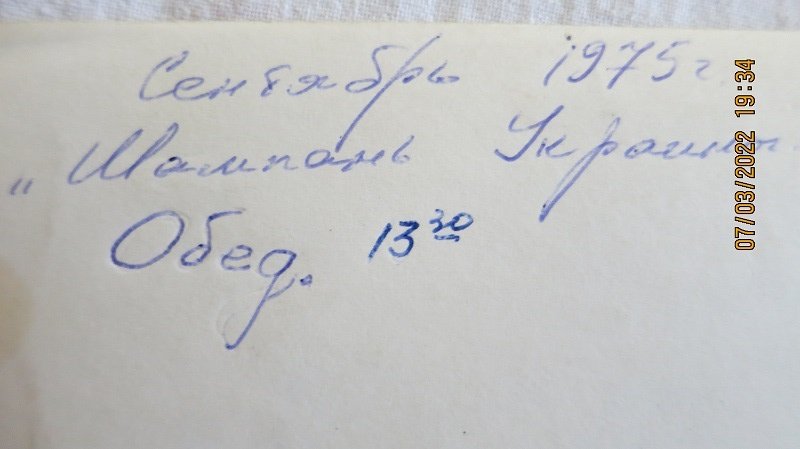 Сентябрь 1975 г.
„ Шампань Украины
Обед. 13 30
07/03/2022 19:34